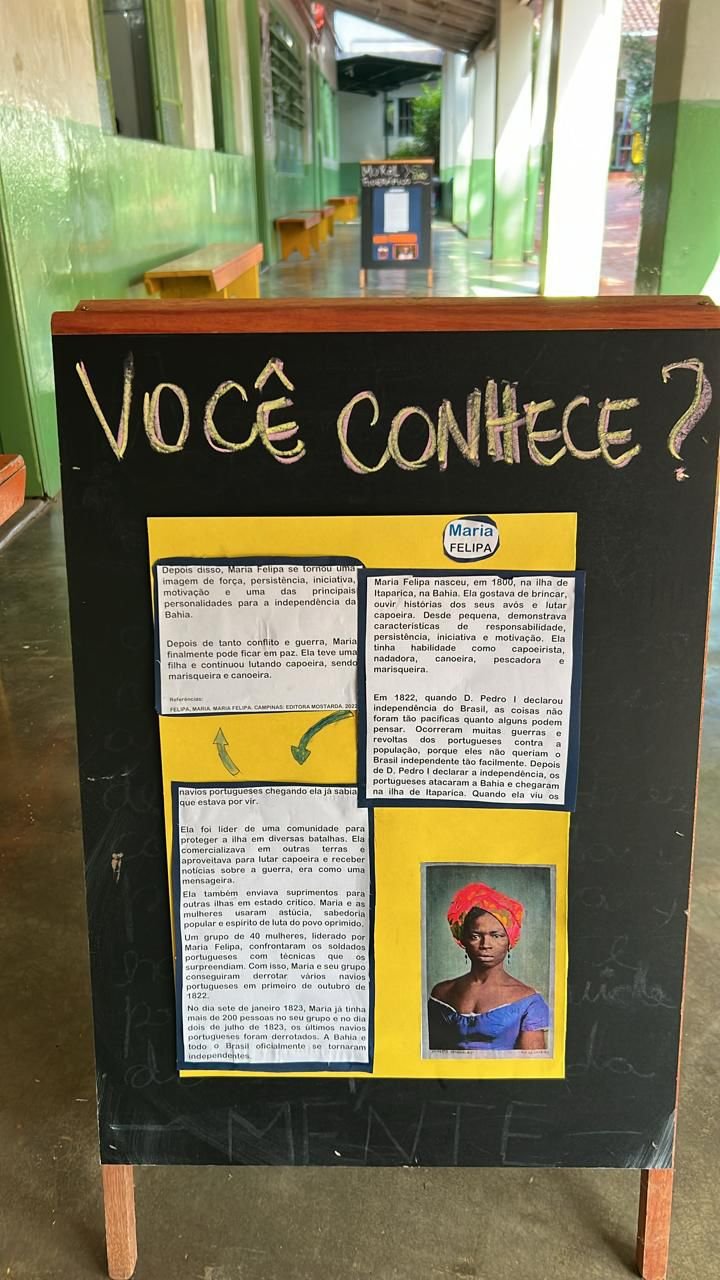 MURAL
VOCÊ CONHECE?
Maria
FELIPA
Maria Felipa nasceu, em 1800, na ilha de
Itaparica, na Bahia. Ela gostava de brincar,
ouvir histórias dos seus avós e lutar
capoeira. Desde pequena, demonstrava
características de responsabilidade,
persistência, iniciativa e motivação. Ela
tinha habilidade como capoeirista,
nadadora, canoeira, pescadora e
marisqueira.
Em 1822, quando D. Pedro I declarou
independência do Brasil, as coisas não
foram tão pacíficas quanto alguns podem
pensar. Ocorreram muitas guerras e
revoltas dos portugueses contra a
população, porque eles não queriam o
Brasil independente tão facilmente. Depois
de D. Pedro I declarar a independência, os
portugueses atacaram a Bahia e chegaram
na ilha de Itaparica. Quando ela viu os
navios portugueses chegando ela já sabia
que estava por vir.
Ela foi líder de uma comunidade para
proteger a ilha em diversas batalhas. Ela
comercializava em outras terras e
aproveitava para lutar capoeira e receber
notícias sobre a guerra, era como uma
mensageira.
Ela também enviava suprimentos para
outras ilhas em estado crítico. Maria e as
mulheres usaram astúcia, sabedoria
popular e espírito de luta do povo oprimido.
Um grupo de 40 mulheres, liderado por
Maria Felipa, confrontaram os soldados
portugueses com técnicas que os
surpreendiam. Com isso, Maria e seu grupo
conseguiram derrotar vários navios
portugueses em primeiro de outubro de
1822.
No dia sete de janeiro 1823, Maria já tinha
mais de 200 pessoas no seu grupo e no dia
dois de julho de 1823, os últimos navios
portugueses foram derrotados. A Bahia e
todo o Brasil oficialmente se tornaram
independentes.
Depois disso, Maria Felipa se tornou uma
imagem de força, persistência, iniciativa,
motivação e uma das principais
personalidades para a independência da
Bahia.
Depois de tanto conflito e guerra, Maria
finalmente pode ficar em paz. Ela teve uma
filha e continuou lutando capoeira, sendo
marisqueira e canoeira.
Referências:
FELIPA, MARIA. MARIA FELIPA. CAMPINAS: EDITORA MOSTARDA. 2022
MENTE